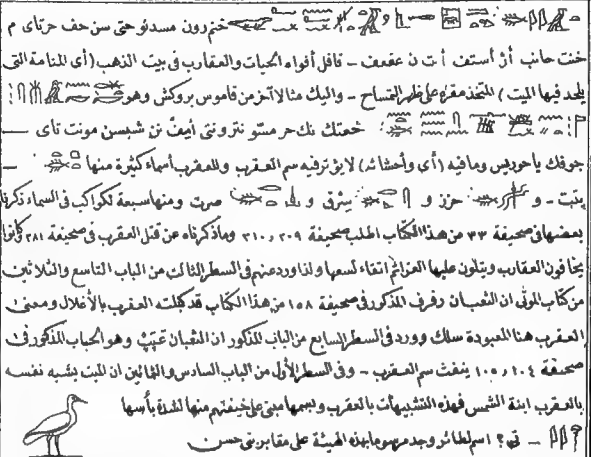 ختم رون مسدنو حتى سن حف حرتاى م
خنت حانب أن أستف أ ت ن عقعف - قافل أفواه الحيات والعقارب فى بيت الذهب (أى المنامة التى
يلحد فيها الميت) المتخذ مقره على ظهر التمساح - واليك مثالا آخر من قاموس بروكش وهو
نك حر مسو نترو نتى أيمف نن شبسن مونت تاى
جوفك ياحوريس ومافيه (أى وأحشائه) لايؤثر فيه سم العقرب وللعقرب أسماء كثيرة منها
- و حرز و سرق و صرت ومنها سبعة لكواكب فى السماء ذكرنا
بعضها فى صحيفة ٣٣ من هذا الكتاب اطلب صحيفة ٢٠٩ و ٢١٠ وماذكرناه عن قتل العقرب فى صحيفة ٢٨١ كانوا
يخافون العقارب ويتلون عليها العزائم اتقاء لسعها ولذا ورد عنهم فى السطر الثالث من الباب التاسع والثلاثين
من كتاب الموتى ان الثعبان رفرف المذكور فى صحيفة ١٥٨ من هذا الكتاب قد كبلته العقرب بالأغلال ومعنى
العقرب هنا المعبودة سلك وورد فى السطر السابع من الباب المذكور ان الثعبان عَپَپْ وهو الحباب المذكور فى
صحيفة ١٠٤ و ١٠٥ ينفث سم العقرب - وفى السطر الأول من الباب السادس والثمانين ان الميت يشبه نفسه
بالعقرب ابنة الشمس فهذه التشبيهات بالعقرب وبسمها مبنى على خيفتهم منها لشدة بأسها
- تى ؟ اسم لطائر وجد مرسوما بهذه الهيئة على مقابر بنى حسن